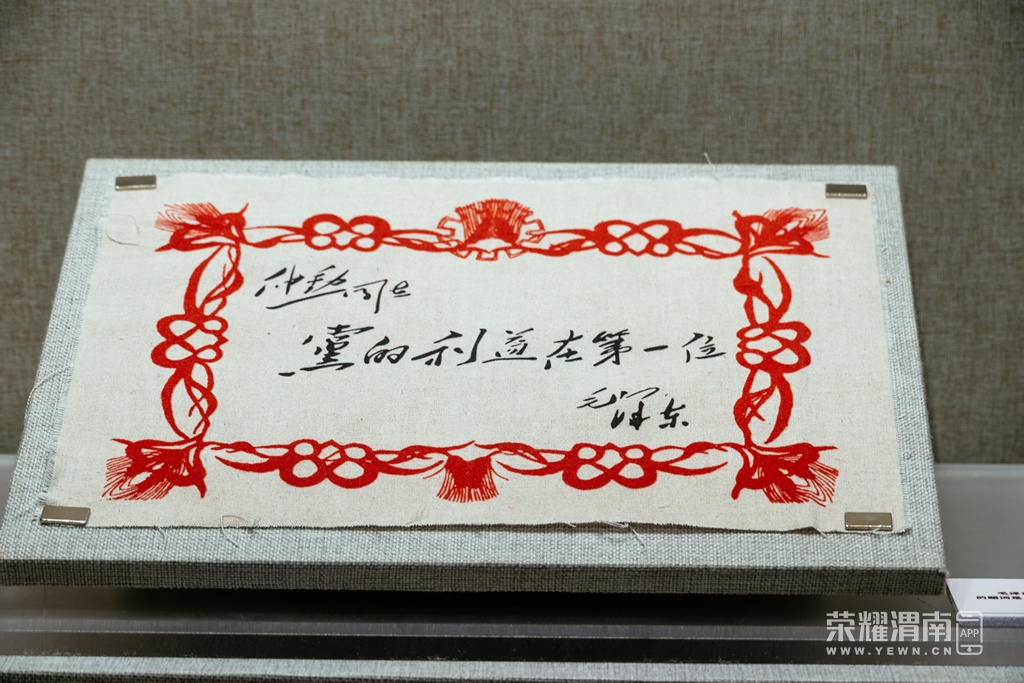 仲勋同志
党的利益在第一位
毛泽东
荣耀渭南 APP
WWW.YEWN.CN